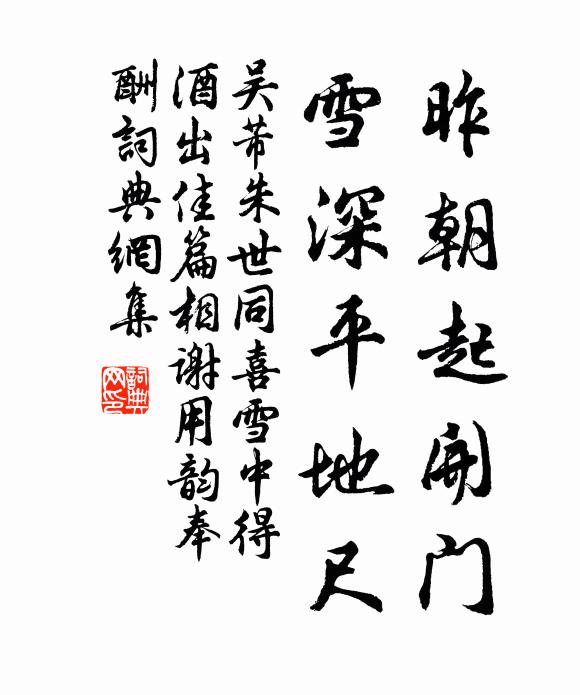 昨朝起開门
雪深平地尺
吴芾朱世同喜雪中得
酒出佳篇相谢用韵奉
酬詞典網集
詞典
网印